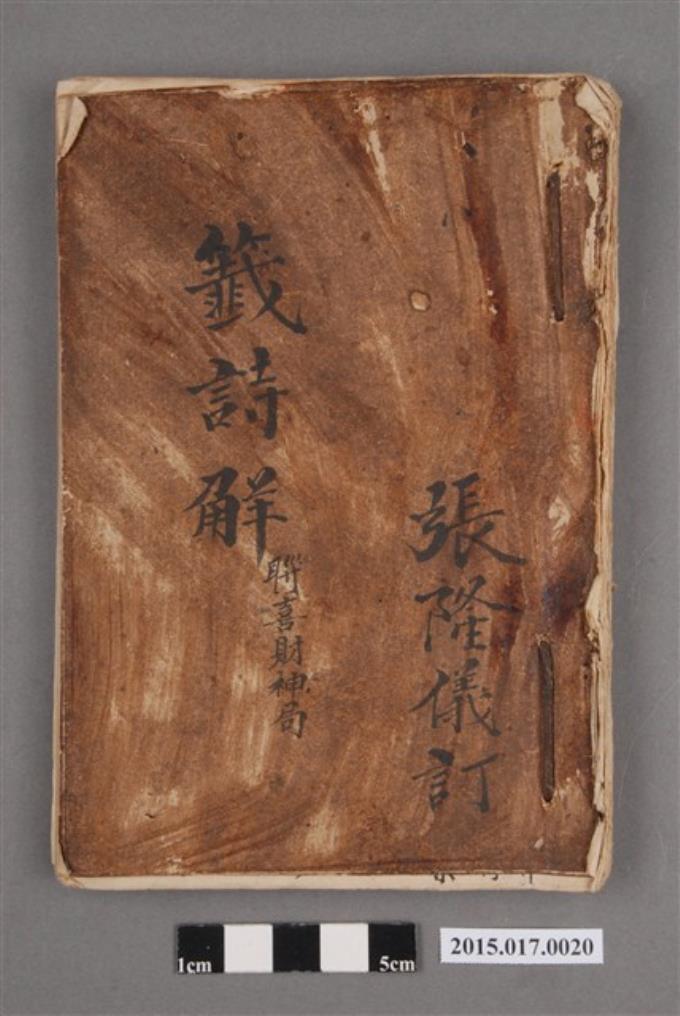 張隆儀訂
籤詩解
聯喜財神局
1cm
5cm
2015.017.0020